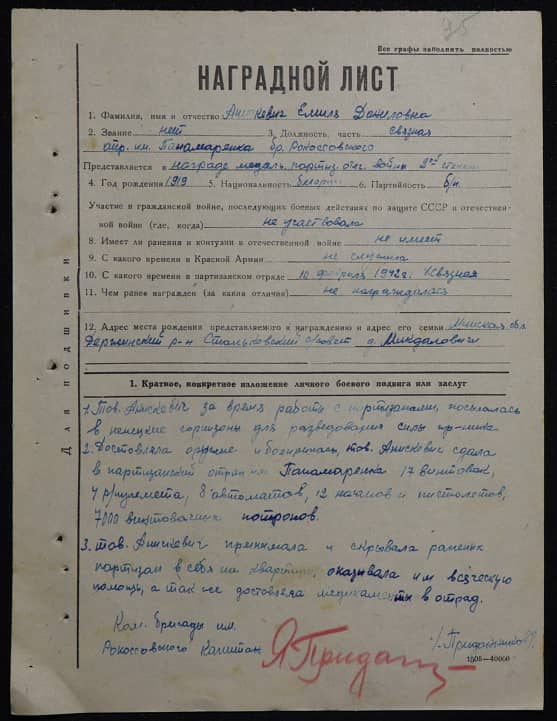 25
Все графы заполнять полностью
НАГРАДНОЙ ЛИСТ
1. Фамилия, имя и отчество Анискевич Данилов­на
2. Звание нет 3. Должность, часть связная
отр. им. Панамаренка бр. Рокоссовского
Представляется к награде медаль партиз. отеч. войны 2ой степени
4. Год рождения 1919 5. Национальность 6. Партийность б/п.
Участие в гражданской войне, последующих боевых действиях по защите СССР и отечествен-
ной войне (где, когда) не участвовала
8. Имеет ли ранения и контузии в отечественной войне не имеет
9. С какого времени в Красной Армии не служила
10. С какого времени в партизанском отряде 10 февраля 1942г. связная
11. Чем ранее награжден (за какия отличия) не награждалась
12. Адрес места рождения представляемого к награждению и адрес его семьи Минская обл.
Держинский р-н Станьковский с/совет д.
Для подшивки
1. Краткое, конкретное изложение личного боевого подвига или заслуг
1. Тов. Анискевич за время работы с партизанами, посылалась
в немецкие горизоны для разведования силы пр-ника.
2. Доставляла оружие и боеприпасы, тов. Анискевич сдала
в партизанский отряд им. Панамаренка 17 винтовок,
4 р/пулемета, 8 автоматов, 12 наганов и пистолетов,
7000 винтовачных потронов.
3. тов. Анискевич принимала и скрывала раненых
партизан в себя на квартире, оказывала им всяческую
помощь, а так же доставляла медикаменты в отряд.
Ком. бригады им.
Рокоссовского Капитан
1505—40000